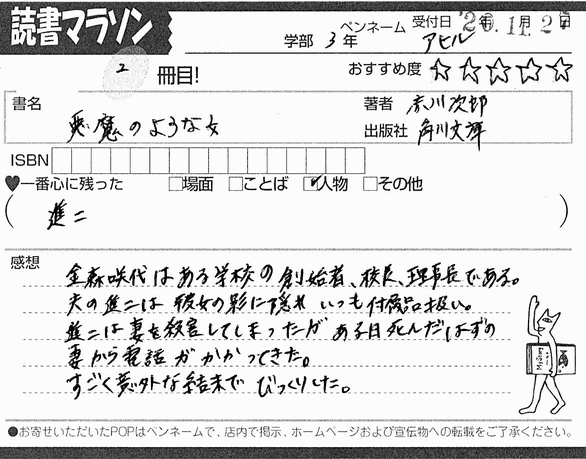 読書マラソン
学部 3年 ペンネーム アヒル 受付日 '26年11.月27日
2冊目!
おすすめ度 ☆☆☆☆☆
書名 悪魔のような女
著者 赤川次郎
出版社 角川文庫
ISBN
♥一番心に残った □場面 □ことば ☑人物 □その他
(進二)
感想
金森咲代はある学校の創始者、校長、理事長である。
夫の進二は彼女の影に隠れいつも付属品扱い。
進二は妻を殺害してしまったがある日死んだはずの
妻から電話がかかってきた。
すごく意外な結末でびっくりした。
●お寄せいただいたPOPはペンネームで、店内で掲示、ホームページおよび宣伝物への転載をご了承ください。